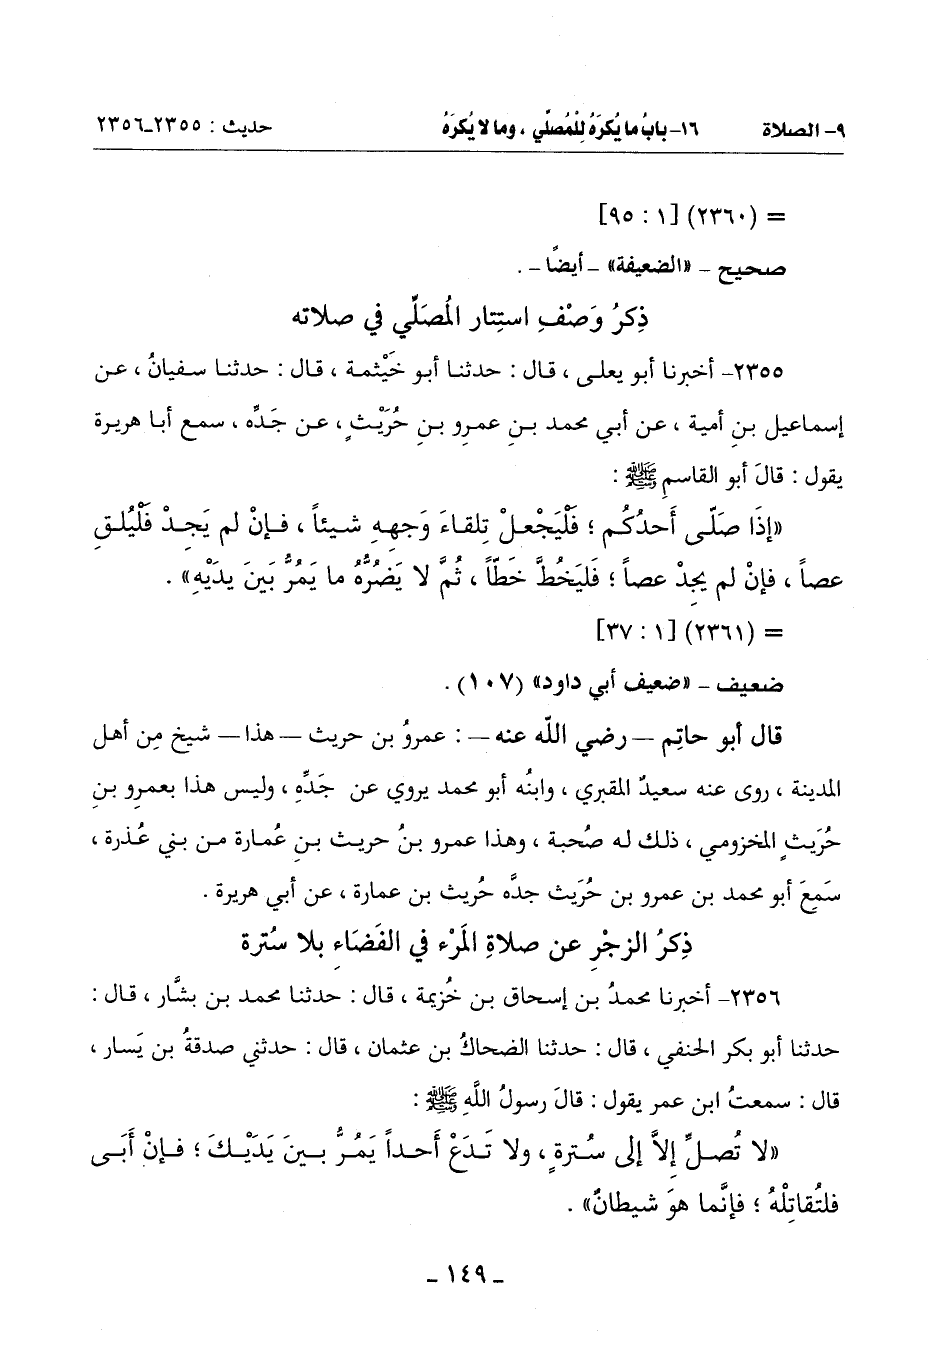 ٩- الصلاة ١٦- بابُ ما يُكرَهُ لِلْمُصلِّي ، وما لا يُكرَهُ حديث : ٢٣٥٥-٢٣٥٦
= (٢٣٦٠) [١ : ٩٥]
صحيح - «الضعيفة» - أيضاً - .
ذِكرُ وَصْفِ استِتار المُصَلِّي في صلاته
٢٣٥٥- أخبرنا أبو يعلى ، قال : حدثنا أبو خَيْثمة ، قال : حدثنا سفيانُ ، عن
إسماعيل بنِ أمية ، عن أبي محمد بنِ عمرِو بنِ حُرَيْثٍ ، عن جَدِّه ، سمع أبا هريرة
يقول : قالَ أبو القاسمِ ﷺ :
«إذَا صَلَّى أحدُكُم ؛ فَلْيَجْعلْ تِلقاءَ وَجههِ شيئاً ، فإنْ لم يَجدْ فَلْيُلقِ
عصاً ، فإنْ لم يجِدْ عصاً ؛ فليَخُطَّ خَطّاً ، ثُمَّ لا يَضُرُّهُ ما يَمُرُّ بَينَ يدَيْهِ» .
= (٢٣٦١) [١ : ٣٧]
ضعيف - «ضعيف أبي داود» (١٠٧) .
قال أبو حاتِم - رضي اللّه عنه - : عمروُ بن حريث - هذا - شيخ مِن أهل
المدينة ، روى عنه سعيدٌ المقبري ، وابنُه أبو محمد يروي عن جَدِّهِ ، وليس هذا بعمرِو بنِ
حُرَيثٍ المخزومي ، ذلك له صُحبة ، وهذا عمرو بنُ حريث بنِ عُمارة من بني عُذرة ،
سَمِعَ أبو محمد بن عمرو بن حُرَيث جدَّه حُريث بن عمارة ، عن أبي هريرة .
ذِكرُ الزجْرِ عن صلاةِ المَرْء في الفَضَاء بلا سُترة
٢٣٥٦- أخبرنا محمدُ بن إسحاق بن خُزيمة ، قال : حدثنا محمد بن بشَّار ، قال :
حدثنا أبو بكر الحنفي ، قال : حدثنا الضحاكُ بن عثمان ، قال : حدثني صدقةُ بن يَسار ،
قال : سمعتُ ابن عمر يقول : قالَ رسولُ اللَّهِ ﷺ :
«لا تُصلِّ إلاَّ إلى سُترةٍ ، ولا تَدَعْ أحداً يَمُرُّ بينَ يَدَيْكَ ؛ فإنْ أَبَى
فلتُقاتِلْهُ ؛ فإنَّما هوَ شيطانٌ» .
- ١٤٩ -